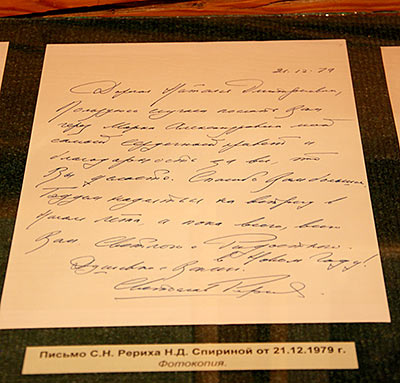 21.12.79
Дорогая Наталия Дмитриевна,
Пользуюсь случаем послать Вам
через Марка Александровича мой
самый сердечный привет и
благодарность за все, что
Вы делаете. Спасибо Вам большое.
Будем надеяться на встречу в
начале лета, а пока всего, всего
Вам Светлого и Радостного
в Новом Году!
Душевно с Вами.
Святослав Рерих
Письмо С.Н. Рериха Н.Д. Спириной от 21.12.1979 г.
Фотокопия.